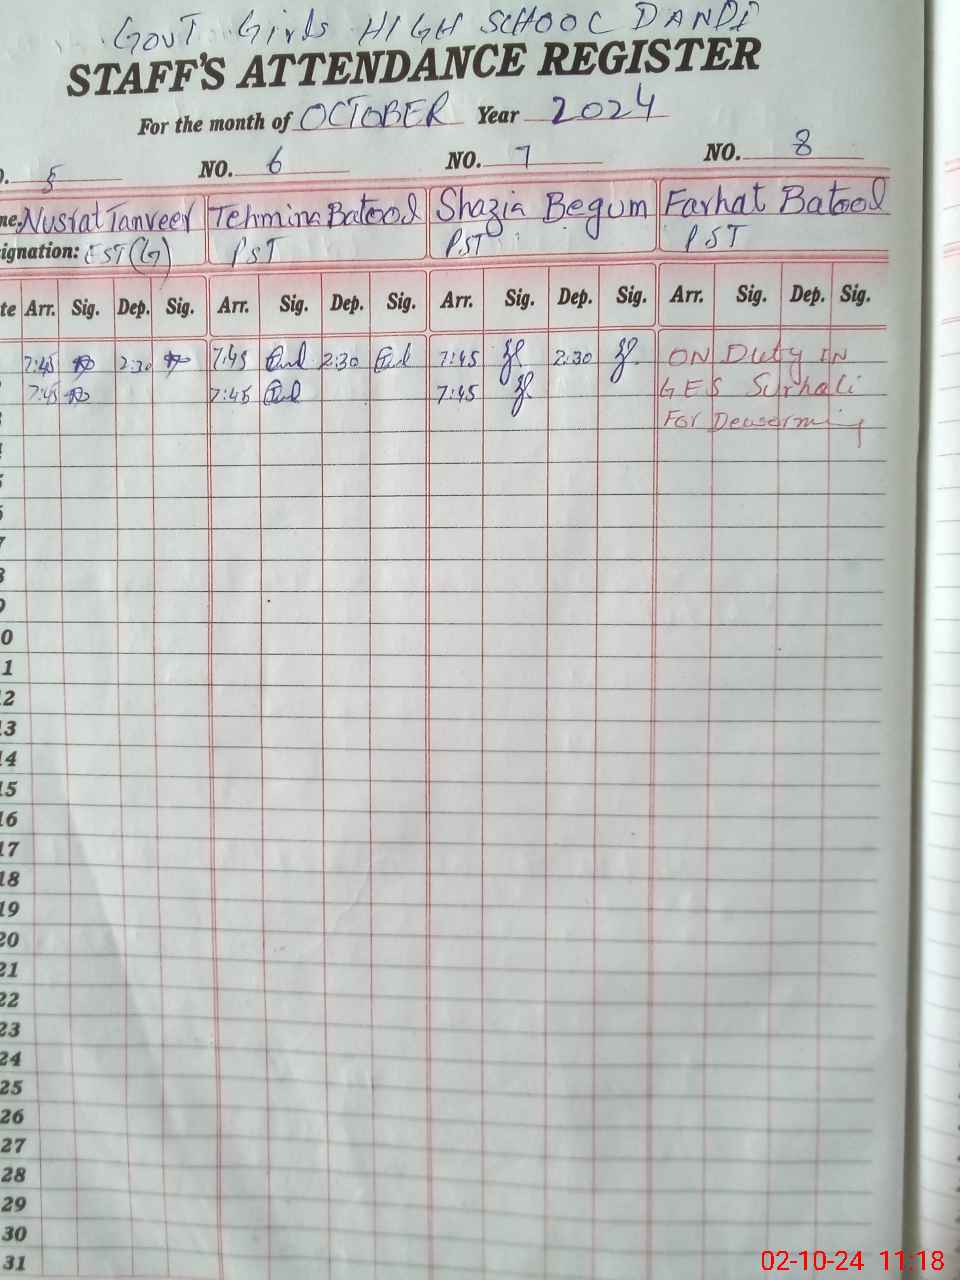 GOVT Girls HIGH SCHOOL DANDI
STAFF'S ATTENDANCE REGISTER
For the month of OCTOBER Year 2024
5 NO. 6 NO. 7 NO. 8
me. Nusrat Tanveer Tehmina Batool Shazia Begum Farhat Batool
ignation: EST(G) PST PST PST
te Arr. Sig. Dep. Sig. Arr. Sig. Dep. Sig. Arr. Sig. Dep. Sig. Arr. Sig. Dep. Sig.
7:45 2:30 7:45 2:30 7:45 2:30 ON Duty IN
7:45 7:45 7:45 GES Surhali
3 For Deworming
4
5
6
7
8
9
0
1
12
13
14
15
16
17
18
19
20
21
22
23
24
25
26
27
28
29
30
31
02-10-24 11:18